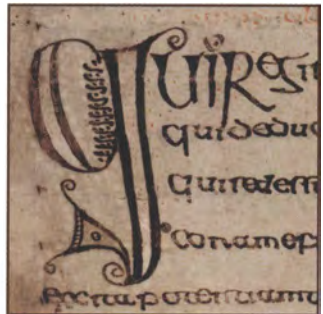 QUIREGI
quideduc
Quisedess
Coramef
excitapotentiam